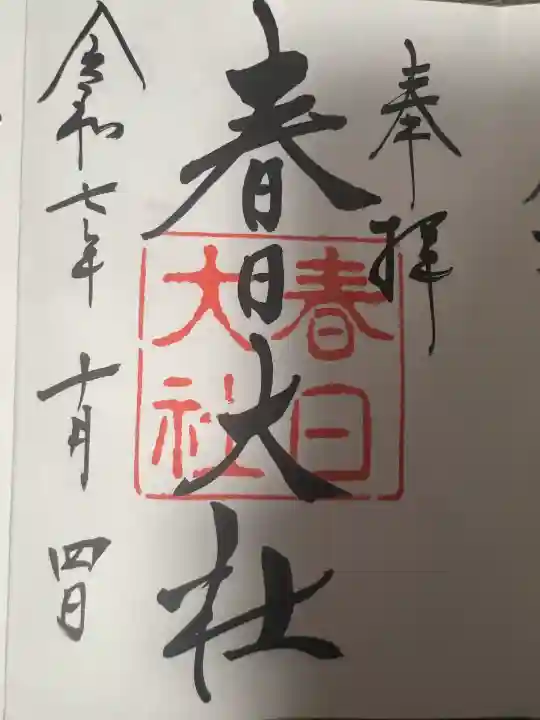 奉拝
春日大社
春日大社
令和七年十月四日